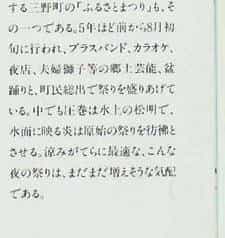 する三野町の「ふるさとまつり」も、そ
の一つである。5年ほど前から8月初
旬に行われ、ブラスバンド、カラオケ、
夜店、夫婦獅子等の郷土芸能、盆
踊りと、町民総出で祭りを盛りあげてい
る。中でも圧巻は水上の松明で、
水面に映る炎は原始の祭りを彷彿と
させる。涼みがてらに最適な、こんな
夜の祭りは、まだまだ増えそうな気配
である。